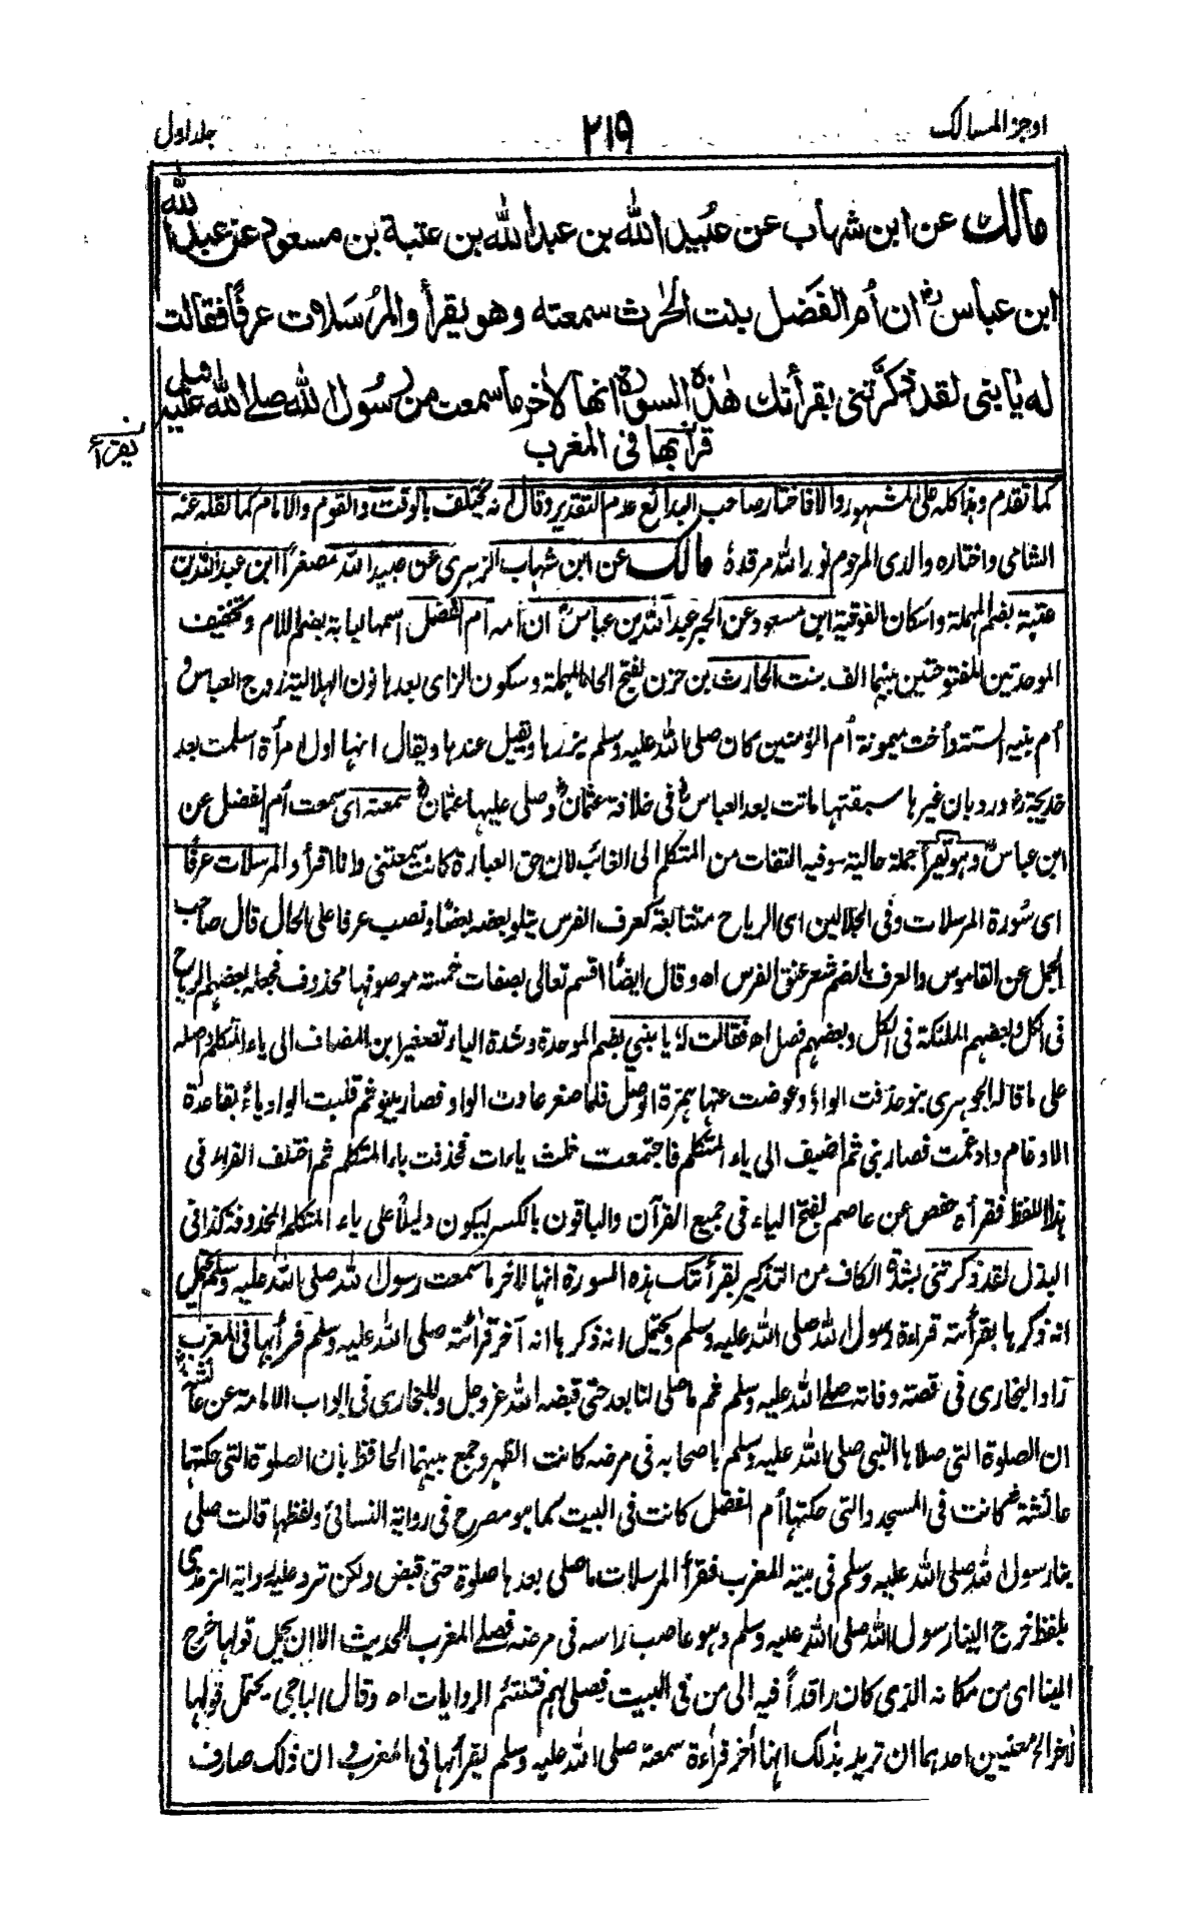 اوجز المسالك
٢١٩
جلد اول
مالك عن ابن شهاب عن عُبيد الله بن عبد الله بن عتبة بن مسعود عن عبد الله
ابن عباس رض ان أم الفَضل بنت الحٰرث سمعته وهو يقرأ والمُرسَلات عرفًا فقالت
له يا بنى لقد ذكَّرتنى بقرأتك هٰذه السورة انها لاٰخر ما سمعت من رسُول الله صلى الله عليه
قرأ بها فى المغرب
يقرأ
كما تقدم وهذا كله على المشهور والا فاختار صاحب البدائع عدم التقدير وقال انه يختلف بالوقت والقوم والامام كما نقله عنه
الشامى واختاره والدى المرحوم نور الله مرقدهٗ مالك عن ابن شهاب الزهرى عن عبيد الله مصغراً ابن عبد الله بن
عتبة بضم المهملة واسكان الفوقية ابن مسعود عن الحبر عبد الله بن عباس رض ان امه أم الفضل اسمها لبابة بضم اللام وتخفيف
الموحدتين المفتوحتين بينهما الف بنت الحارث بن حزن بفتح الحاء المهملة وسكون الزاى بعدها نون الهلالية زوج العباس و
أم بنيه الستة وأخت ميمونة أم المؤمنين كان صلى الله عليه وسلم يزورها ويقيل عندها ويقال انها اول امرأة اسلمت بعد
خديجة رض ورد بان غيرها سبقتها ماتت بعد العباس رض فى خلافة عثمان رض وصلى عليها عثمان رض سمعته اى سمعت أم الفضل عن
ابن عباس رض وهو يقرأ جملة حالية وفيه التفات من المتكلم الى الغائب لان حق العبارة كانت سمعتنى وانا اقرأ والمرسلات عرفاً
اى سُورة المرسلات وفى الجلالين اى الرياح متتابعة كعرف الفرس يتلو بعضه بعضًا ونصب عرفا على الحال قال صاحب
الجمل عن القاموس والعرف بالضم شعر عنق الفرس اه وقال ايضًا اقسم تعالى بصفات خمسة موصوفها محذوف فجعله بعضهم الرياح
فى الكل وبعضهم الملئكة فى الكل وبعضهم فصل اه فقالت لهٗ يا بني بضم الموحدة وشدة الياء تصغير ابن المضاف الى ياء المتكلم واصله
على ما قاله الجوهرى بنو حذفت الواو وعوضت عنها همزة الوصل فلما صغر عادت الواو فصار بنيو ثم قلبت الواو ياءً بقاعدة
الادغام وادغمت فصار بنى ثم اضيف الى ياء المتكلم فاجتمعت ثلث ياءات فحذفت ياء المتكلم ثم اختلف القراء فى
هذا اللفظ فقرأه حفص عن عاصم بفتح الياء فى جميع القرآن والباقون بالكسر ليكون دليلاً على ياء المتكلم المحذوفة كذا فى
البذل لقد ذكرتنى بشدة الكاف من التذكير بقرأتك هذه السورة انها لاخر ما سمعت رسول الله صلى الله عليه وسلم يحتمل
انه ذكرها بقرأته قراءة رسول الله صلى الله عليه وسلم ويحتمل انه ذكرها انه آخر قرائته صلى الله عليه وسلم قرأ بها فى المغرب
زاد البخارى فى قصة وفاته صلى الله عليه وسلم ثم ما صلى لنا بعد حتى قبضه الله عز وجل وللبخارى فى ابواب الامامة عن عائشة رض
ان الصلوة التى صلاها النبى صلى الله عليه وسلم باصحابه فى مرضه كانت الظهر وجمع بينهما الحافظ بان الصلوة التى حكتها
عائشة رض كانت فى المسجد والتى حكتها أم الفضل كانت فى البيت كما هو مصرح فى رواية النسائى ولفظها قالت صلى
بنا رسول الله صلى الله عليه وسلم فى بيته المغرب فقرأ المرسلات ما صلى بعدها صلوة حتى قبض ولكن ترد عليه رواية الترمذى
بلفظ خرج الينا رسول الله صلى الله عليه وسلم وهو عاصب راسه فى مرضه فصلى المغرب الحديث الا ان يحمل قولها خرج
الينا اى من مكانه الذى كان راقداً فيه الى من فى البيت فصلى بهم فتلتئم الروايات اه وقال الباجى يحتمل قولها
لاٰخر المعنيين احدهما ان تريد بذٰلك انها اٰخر قراءة سمعته صلى الله عليه وسلم يقرأ بها فى المغرب و ان ذٰلك صادف